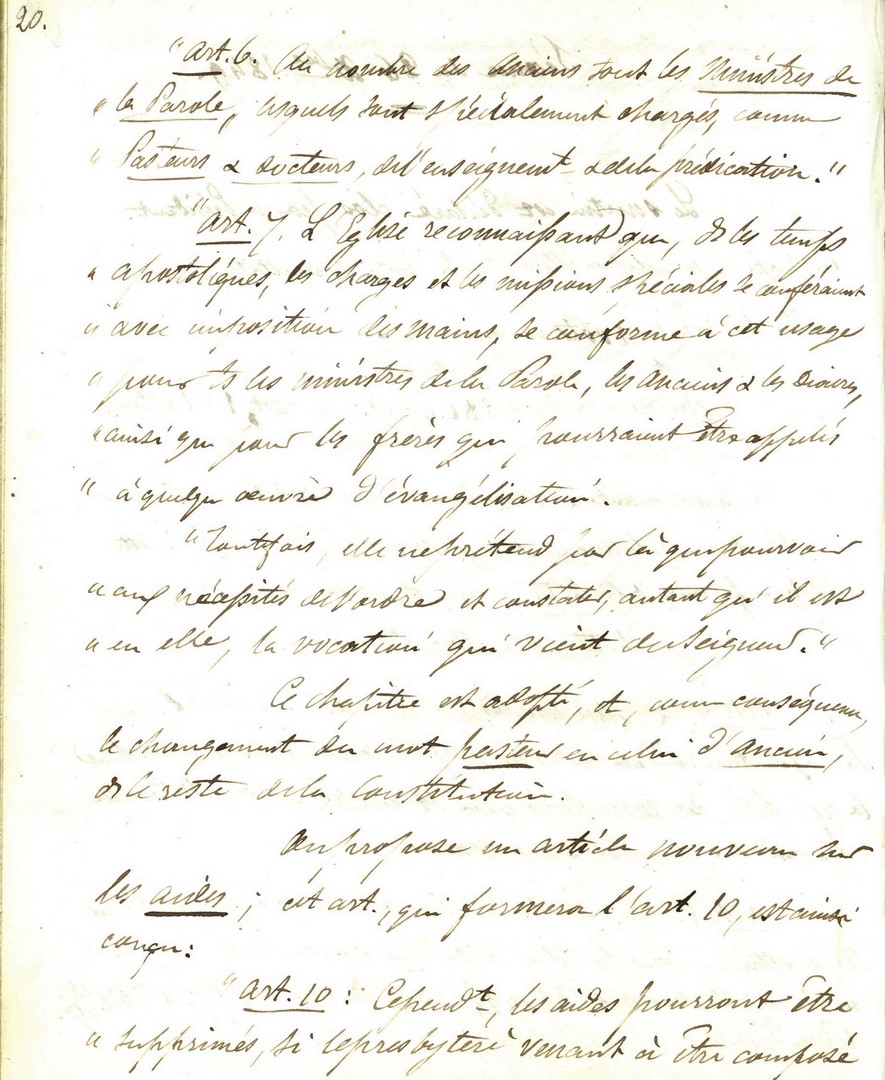 20.
"Art. 6. Au nombre des anciens sont les Ministres de
" la Parole, lesquels sont spécialement chargés, comme
" Pasteurs & docteurs, de l'enseignemt. & de la prédication."
"Art. 7. L'Eglise reconnaissant que, ds les temps
" apostoliques, les charges et les missions spéciales se conféraient
" avec imposition des mains, se conforme à cet usage
" pour ts les ministres de la Parole, les anciens & les diacres,
" ainsi que pour les frères qui pourraient être appelés
" à quelque oeuvre d'évangélisation.
"Toutefois, elle ne prétend par là que pourvoir
" aux nécessités de l'ordre et constater, autant qu'il est
" en elle, la vocation qui vient du Seigneur."
Ce chapitre est adopté, et, comme conséquence,
le changement du mot pasteur en celui d'ancien,
ds le reste de la Constitution.
On propose un article nouveau sur
les aides; cet art., qui formera l'art. 10, est ainsi
conçu:
"Art. 10: Cependt., les aides pourront être
" supprimés, si le presbytère venant à être composé